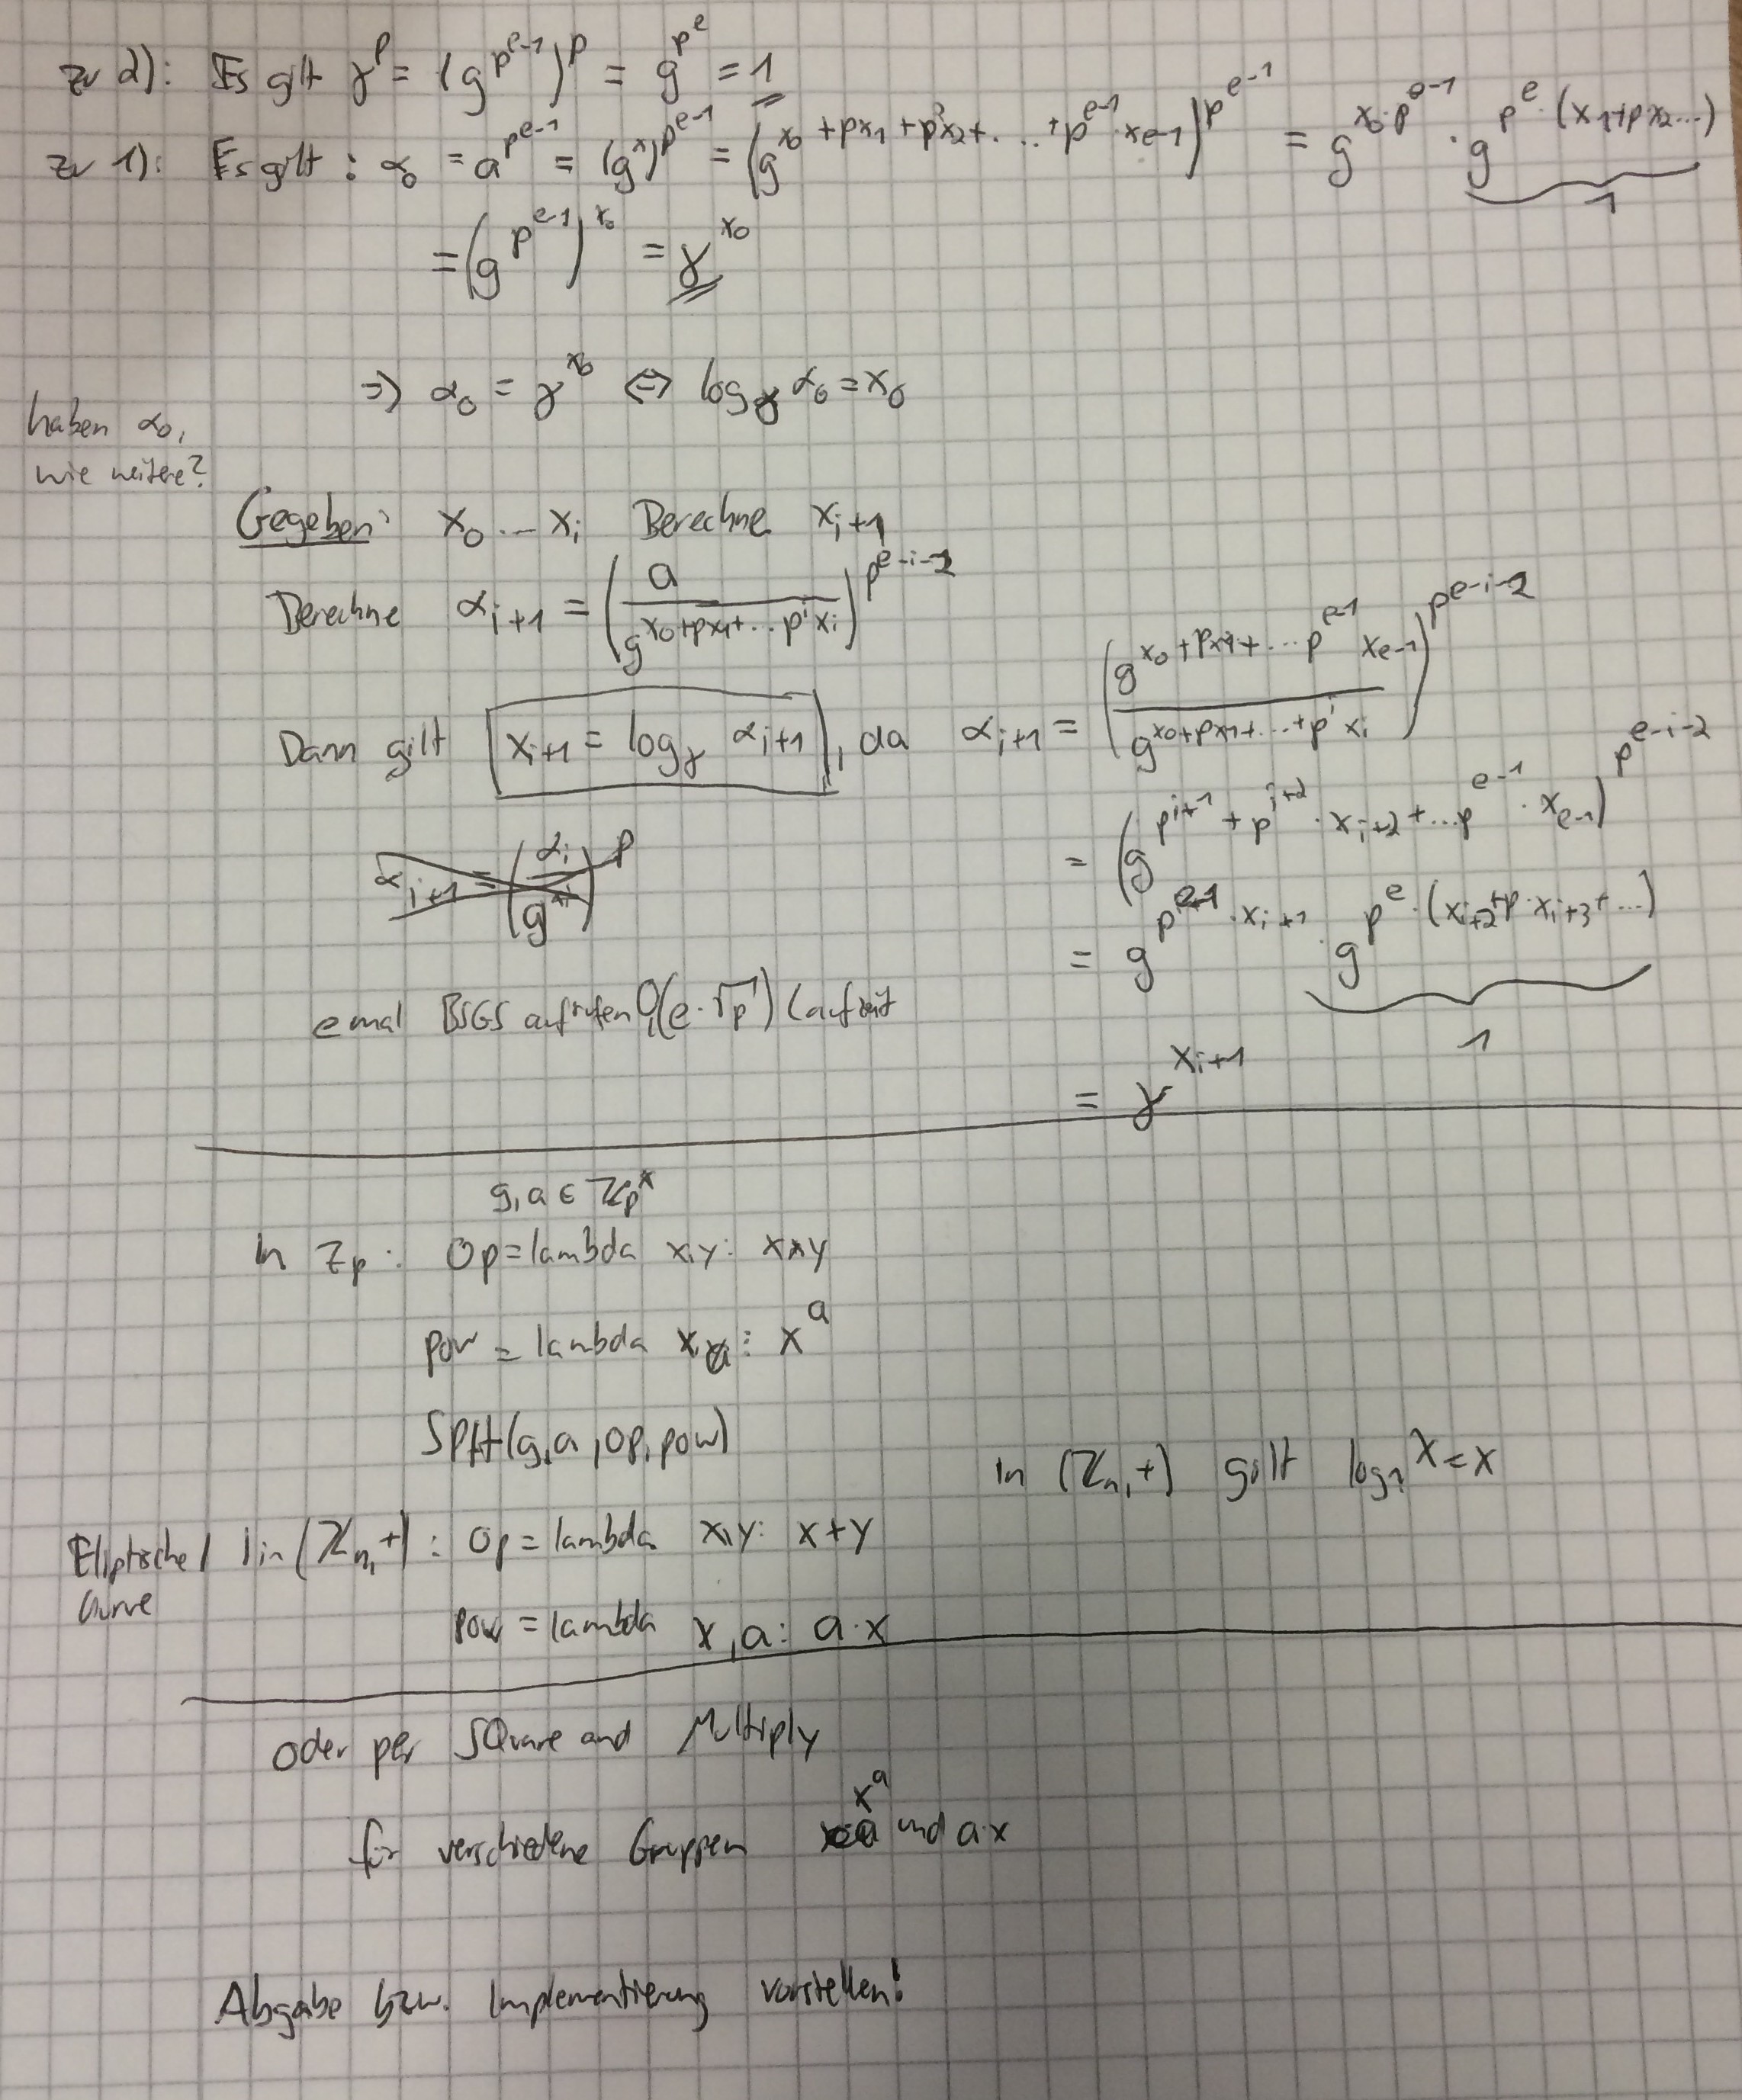 zu 2): Es gilt γ^p = (g^{p^{e-1}})^p = g^{p^e} = 1
zu 1): Es gilt : α_0 = a^{p^{e-1}} = (g^x)^{p^{e-1}} = (g^{x_0 + px_1 + p^2x_2 + ... + p^{e-1}·x_{e-1}})^{p^{e-1}} = g^{x_0·p^{e-1}} · g^{p^e·(x_1+px_2...)}
1
= (g^{p^{e-1}})^{x_0} = γ^{x_0}
⇒ α_0 = γ^{x_0} ⇔ log_γ α_0 = x_0
haben α_0,
wie weitere?
Gegeben: x_0 ... x_i Berechne x_{i+1}
Berechne α_{i+1} = (a / g^{x_0+px_1+...p^i x_i})^{p^{e-i-2}}
Dann gilt x_{i+1} = log_γ α_{i+1}, da α_{i+1} = (g^{x_0+px_1+...p^{e-1} x_{e-1}} / g^{x_0+px_1+...+p^i x_i})^{p^{e-i-2}}
= (g^{p^{i+1} + p^{i+2}·x_{i+2}+...p^{e-1}·x_{e-1}})^{p^{e-i-2}}
α_{i+1} = (α_i / g^{x_i})^p
= g^{p^{e-1}·x_{i+1}} · g^{p^e·(x_{i+2}+p·x_{i+3}+...)}
1
e mal BSGS aufrufen O(e·√p) Laufzeit
= γ^{x_{i+1}}
g, a ∈ ℤ_p^*
In ℤ_p : Op = lambda x,y: x*y
pow = lambda x,a: x^a
SPH(g,a,op,pow)
In (ℤ_n,+) gilt log_1 x = x
Eliptische / in (ℤ_n,+) : Op = lambda x,y: x+y
Curve
pow = lambda x,a: a·x
oder per Square and Multiply
für verschiedene Gruppen x^a und a·x
Abgabe bzw. Implementierung vorstellen!